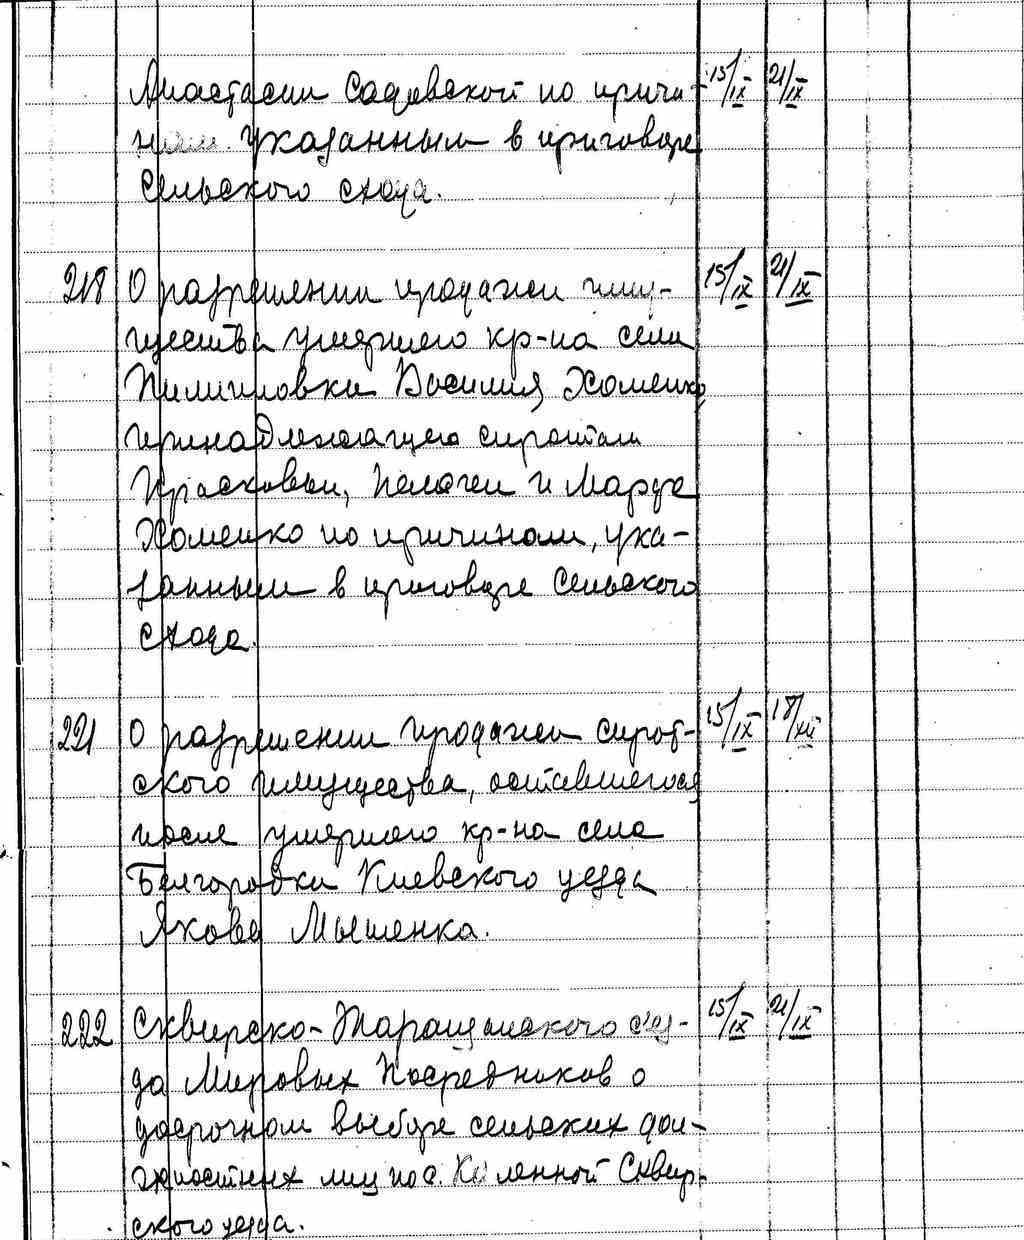 Анастасии Садовской по причи- 15/IX 21/IX
 указанным в приговоре
сельского схода.
218 О разрешении продажи иму- 15/IX 21/IX
щества умершего кр-на села
Пилиповки Василия Хоменко,
принадлежащего сиротам
Прасковьи, Пелагеи и Марфе
Хоменко по причинам, ука-
занным в приговоре сельского
схода.
221 О разрешении продажи сирот- 15/IX 18/XII
ского имущества, оставшегося
после умершего кр-на села
Белгородки Киевского уезда
Якова Мышенка.
222 Сквирско-Таращанского съез- 15/IX 21/IX
да Мировых Посредников о
досрочном выборе сельских дол-
жностных лиц по с. Сквир-
ского уезда.